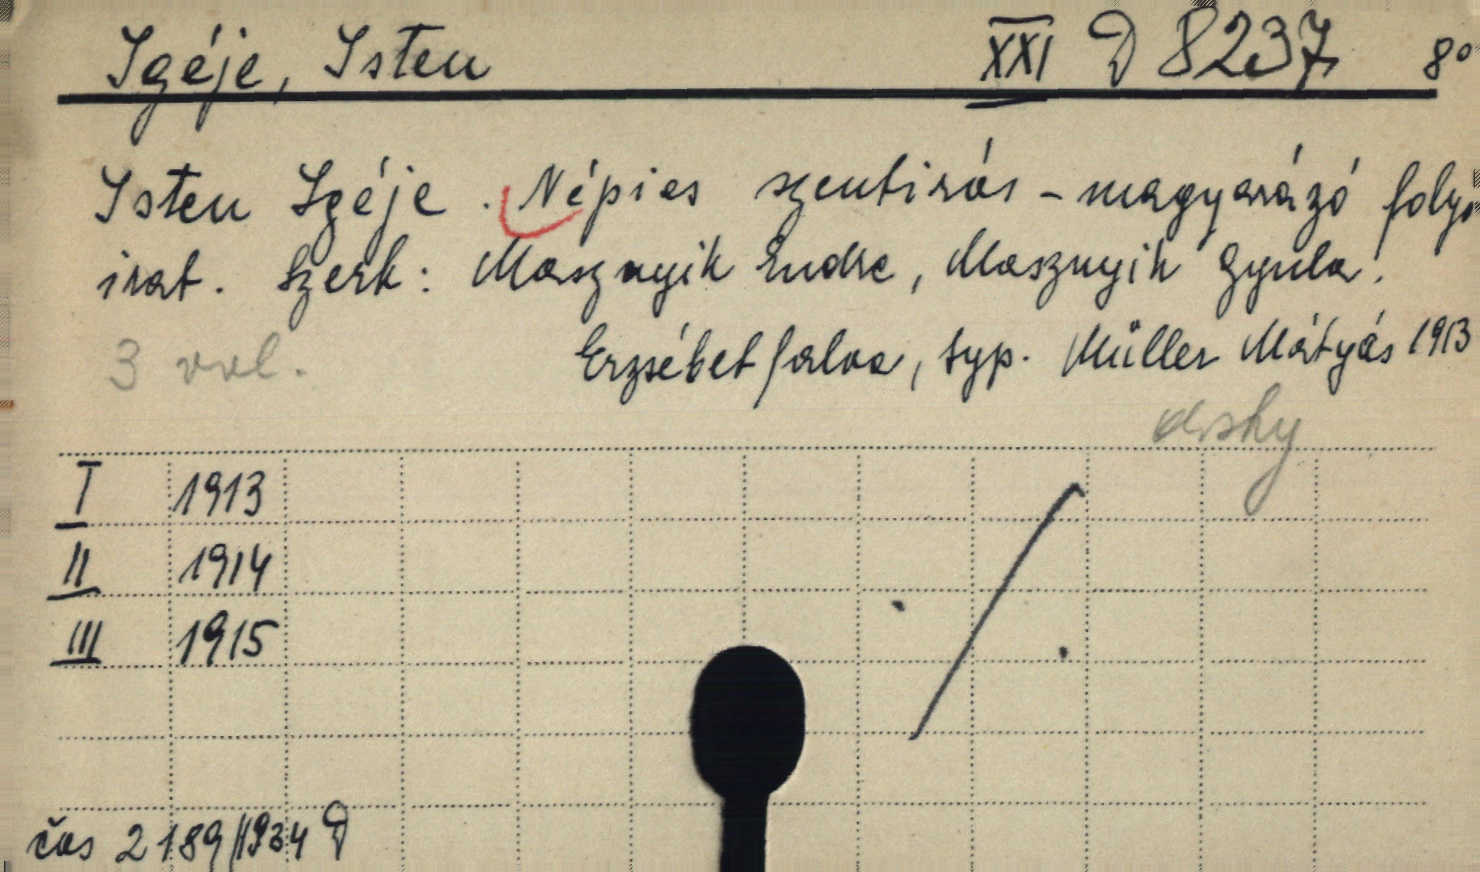 Igéje, Isten XXI D 8237 8°
Isten Igéje. Népies szentirás-magyarázó folyó
irat. Szerk: Masznyik Endre, Masznyik Gyula.
3 vol. Erzsébetfalva, typ. Müller Mátyás 1913
I 1913
II 1914
III 1915
čas 2189/1934 D